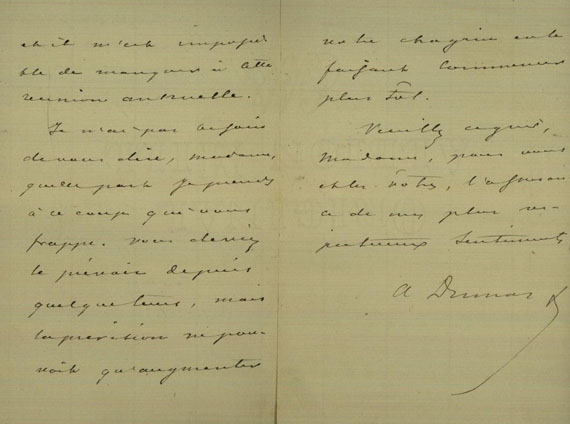 et il m'est impossi
ble de manquer à cette
réunion annuelle.
Je n'ai pas besoin
de vous dire, madame,
quelle part je prends
à ce coup qui vous
frappe. Vous deviez
le prévoir depuis
quelque temps, mais
la prévision ne pou-
vait qu'augmenter
votre chagrin en le
faisant commencer
plus tôt.
Veuillez agréer,
Madame, pour vous
et les vôtres, l'assuran
ce de mes plus res-
pectueux sentiments
A Dumas f